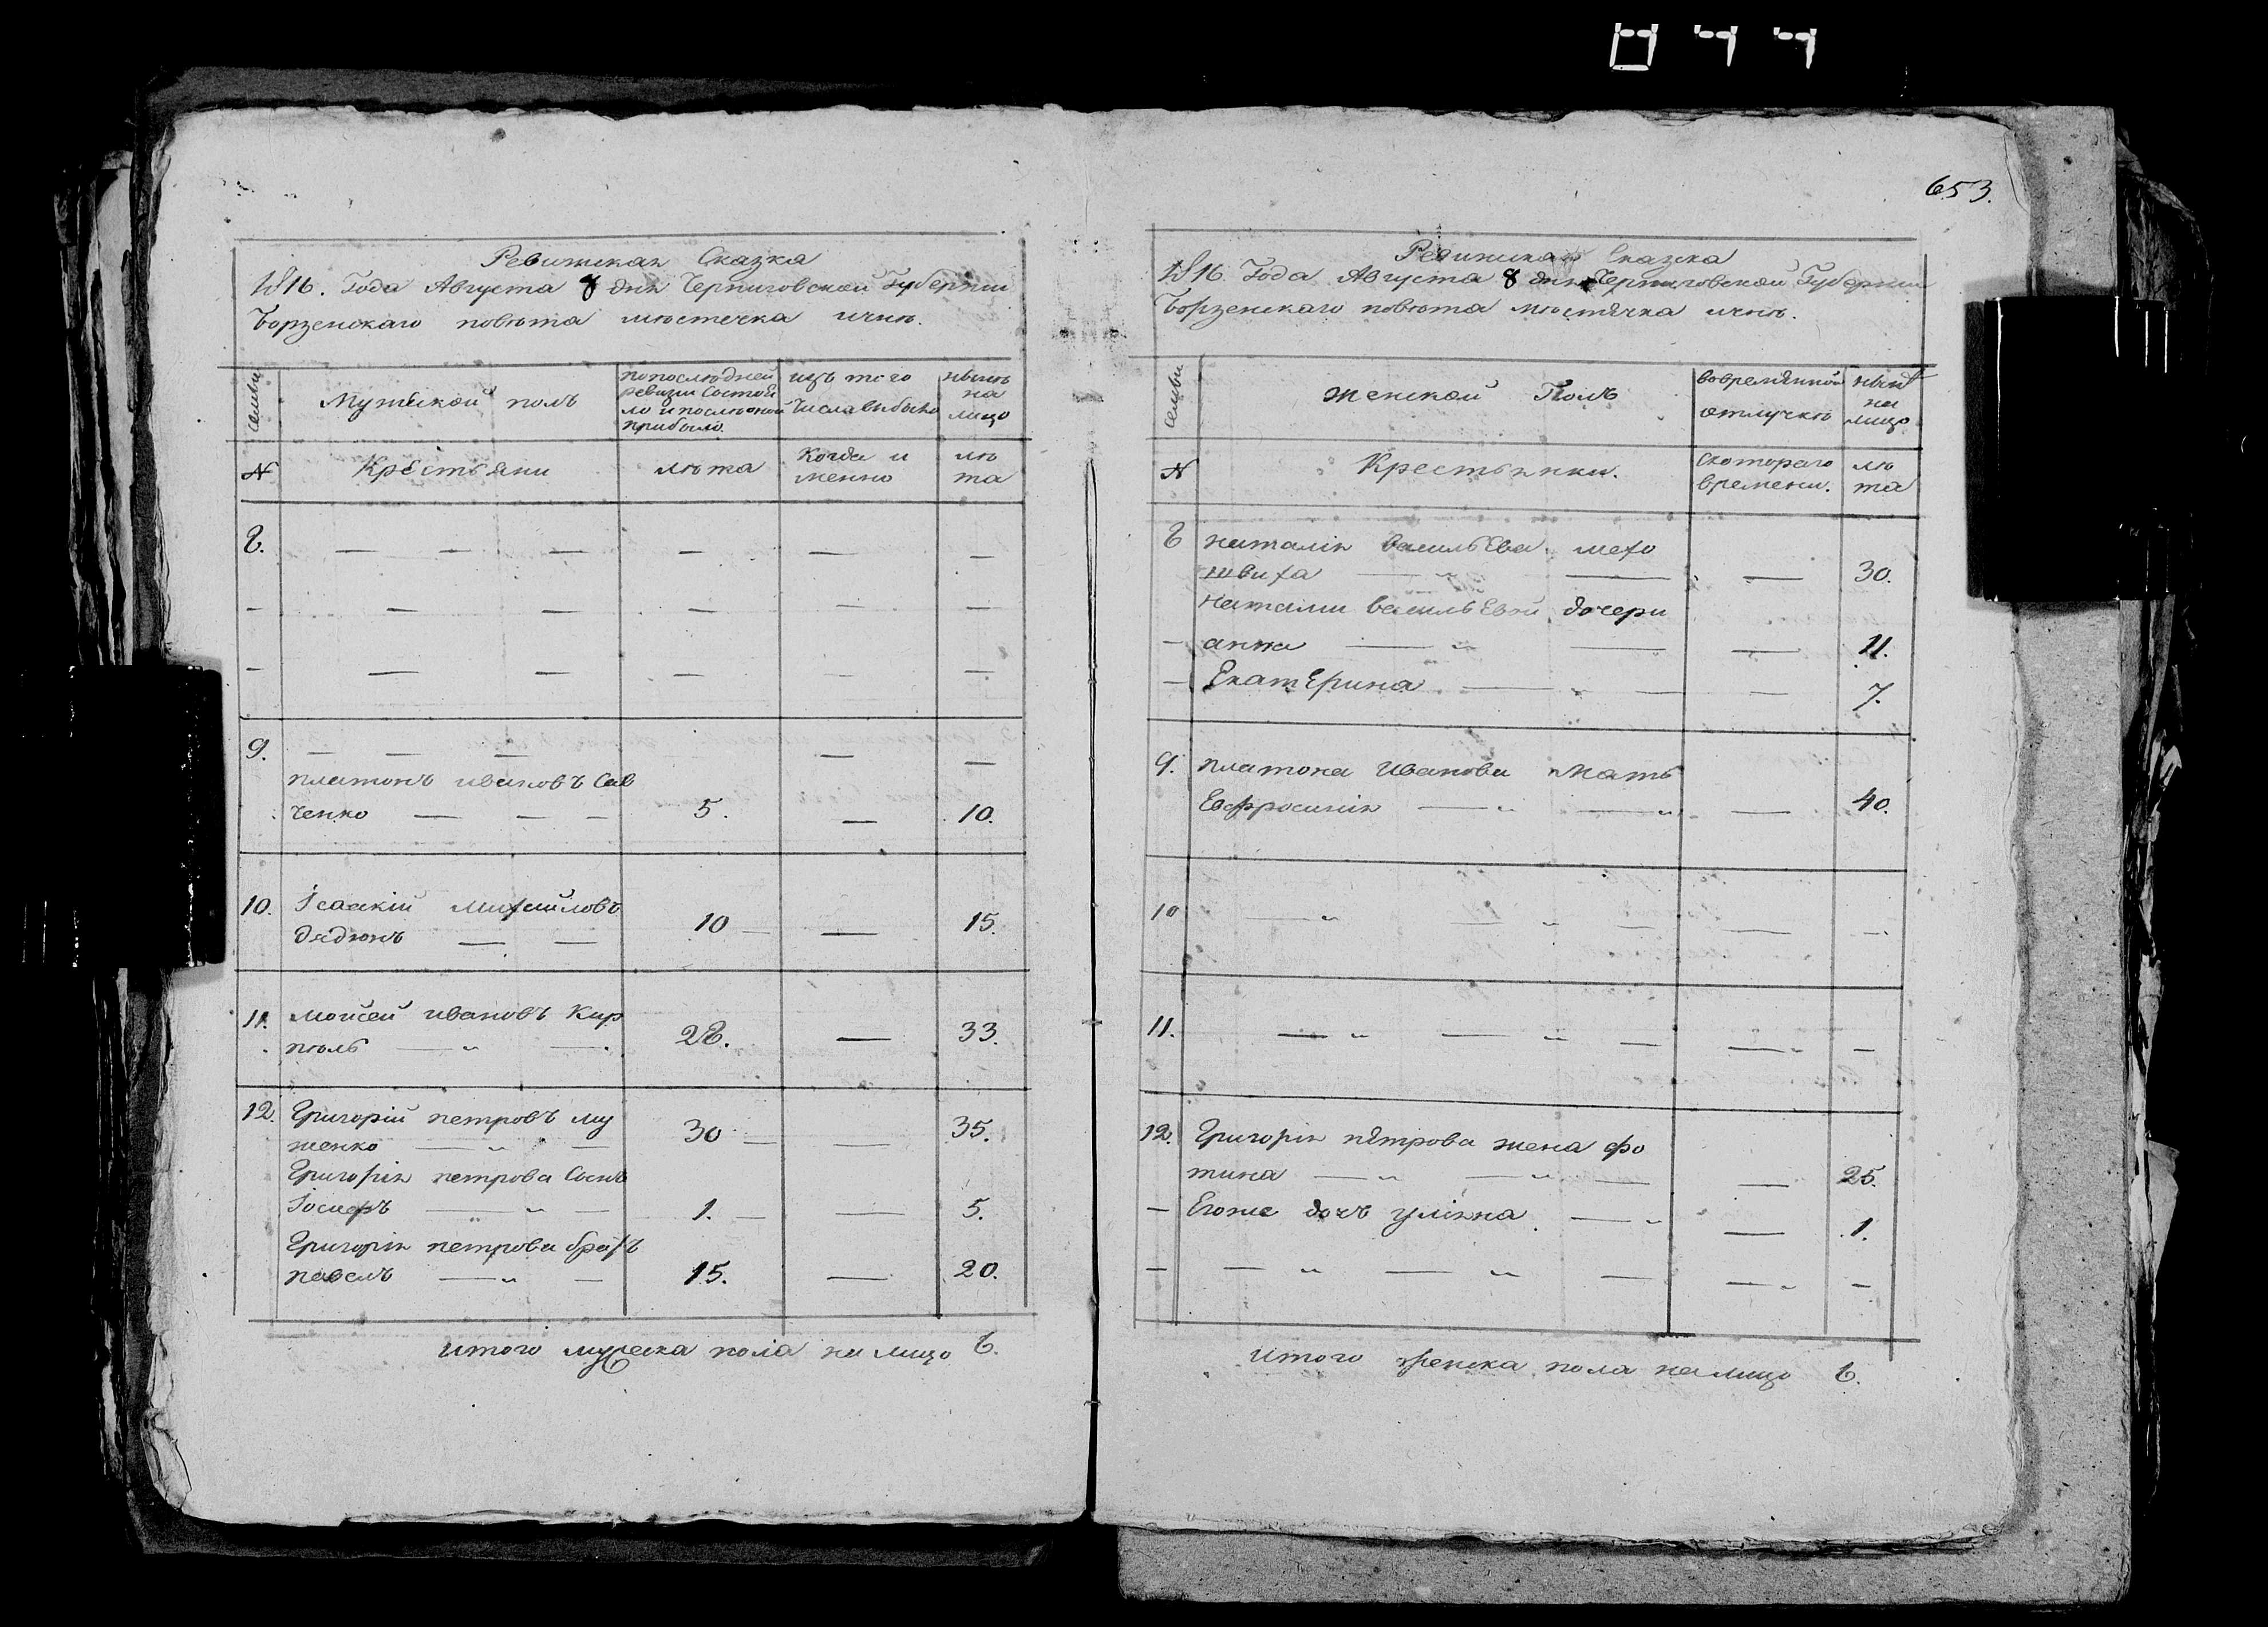 653.
Ревижская Сказка
1816. Года Августа 8 дня Черниговской Губернии
Борзенскаго повѣта мѣстечка ични.
семьи
Мужеской полъ
попослѣдней ревизіи Состоя
ло и послѣ оной прибыло.
изъ того
Числа выбыло
нынѣ на лицо
N
Крестьяни
лѣта
Когда и
менно
лѣ
та
8.
9.
платонъ ивановъ Сав
ченко — — — 5. — 10.
10. Ісаакій михайловъ
дядюнъ — — 10 — — 15.
11. мойсей ивановъ Кир
пѣль — „ — 28. — 33.
12. Григорій петровъ му
женко — „ — 30 — — 35.
Григорія петрова Сынъ
Іосифъ — „ — 1. — — 5.
Григорія петрова братъ
павелъ — „ — 15. — 20.
итого мужеска пола на лицо 6.
Ревижская Сказка
1816 Года Августа 8 дня Черниговской Губернии
Борзенскаго повѣта мѣстечка ични.
семьи
женской Полъ
вовременной
отлучкѣ
нынѣ
на
лицо
N
Крестьянки.
скотораго
времени.
лѣ
та
8 наталія васильева мехо
швиха — „ — — 30.
натальи васильевой дочери
— анна — „ — — 11.
— Екатерина — „ — — 7.
9. платона Иванова мать
Евфросинія — „ — „ — 40.
10 — „ — „ — — —
11. — „ — „ — — „ —
12. Григорія петрова жена фо
тина — „ — „ — — 25.
— Егоже дочъ уліяна — „ — 1.
— — „ — „ — — „ —
итого женска пола налицо 6.